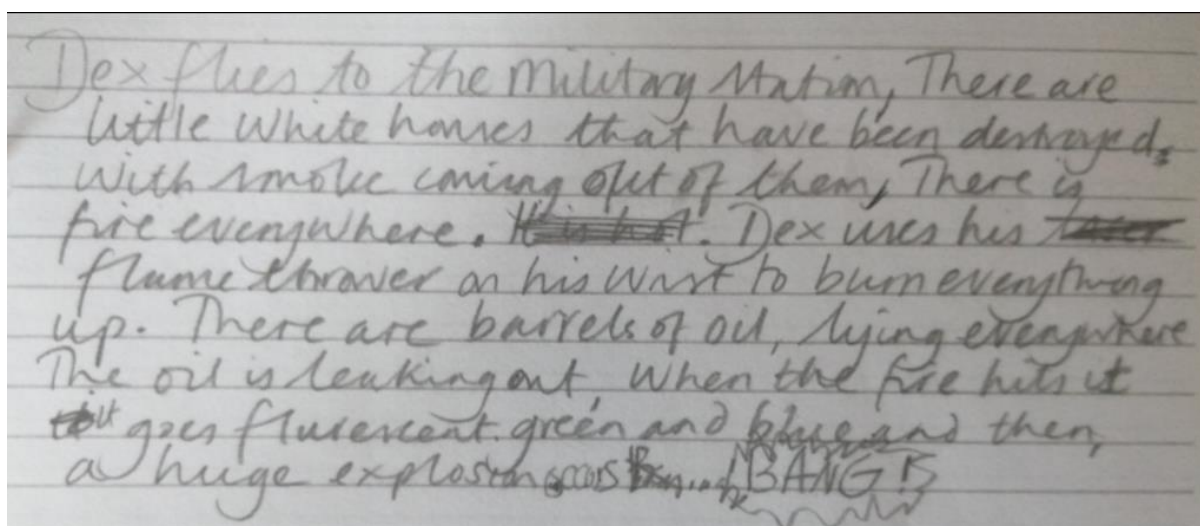 Dex flies to the Military Station, There are
little white houses that have been destroyed.
With smoke coming out of them, There is
fire everywhere. Dex uses his
flame thrower on his wrist to burn everything
up. There are barrels of oil, lying everywhere
The oil is leaking out, When the fire hits it
it goes flurescent green and blue and then,
a huge explosion occurs BANG!!